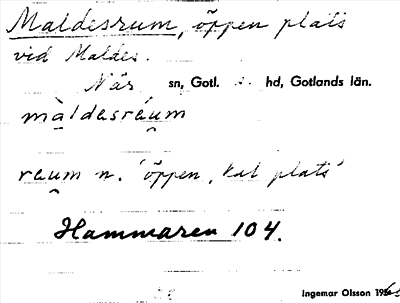 Maldesrum, öppen plats
vid Maldes.
När sn, Gotl. s. hd, Gotlands län.
màldasráum
raum n. 'öppen, kal plats'
Hammaren 104.
Ingemar Olsson 19